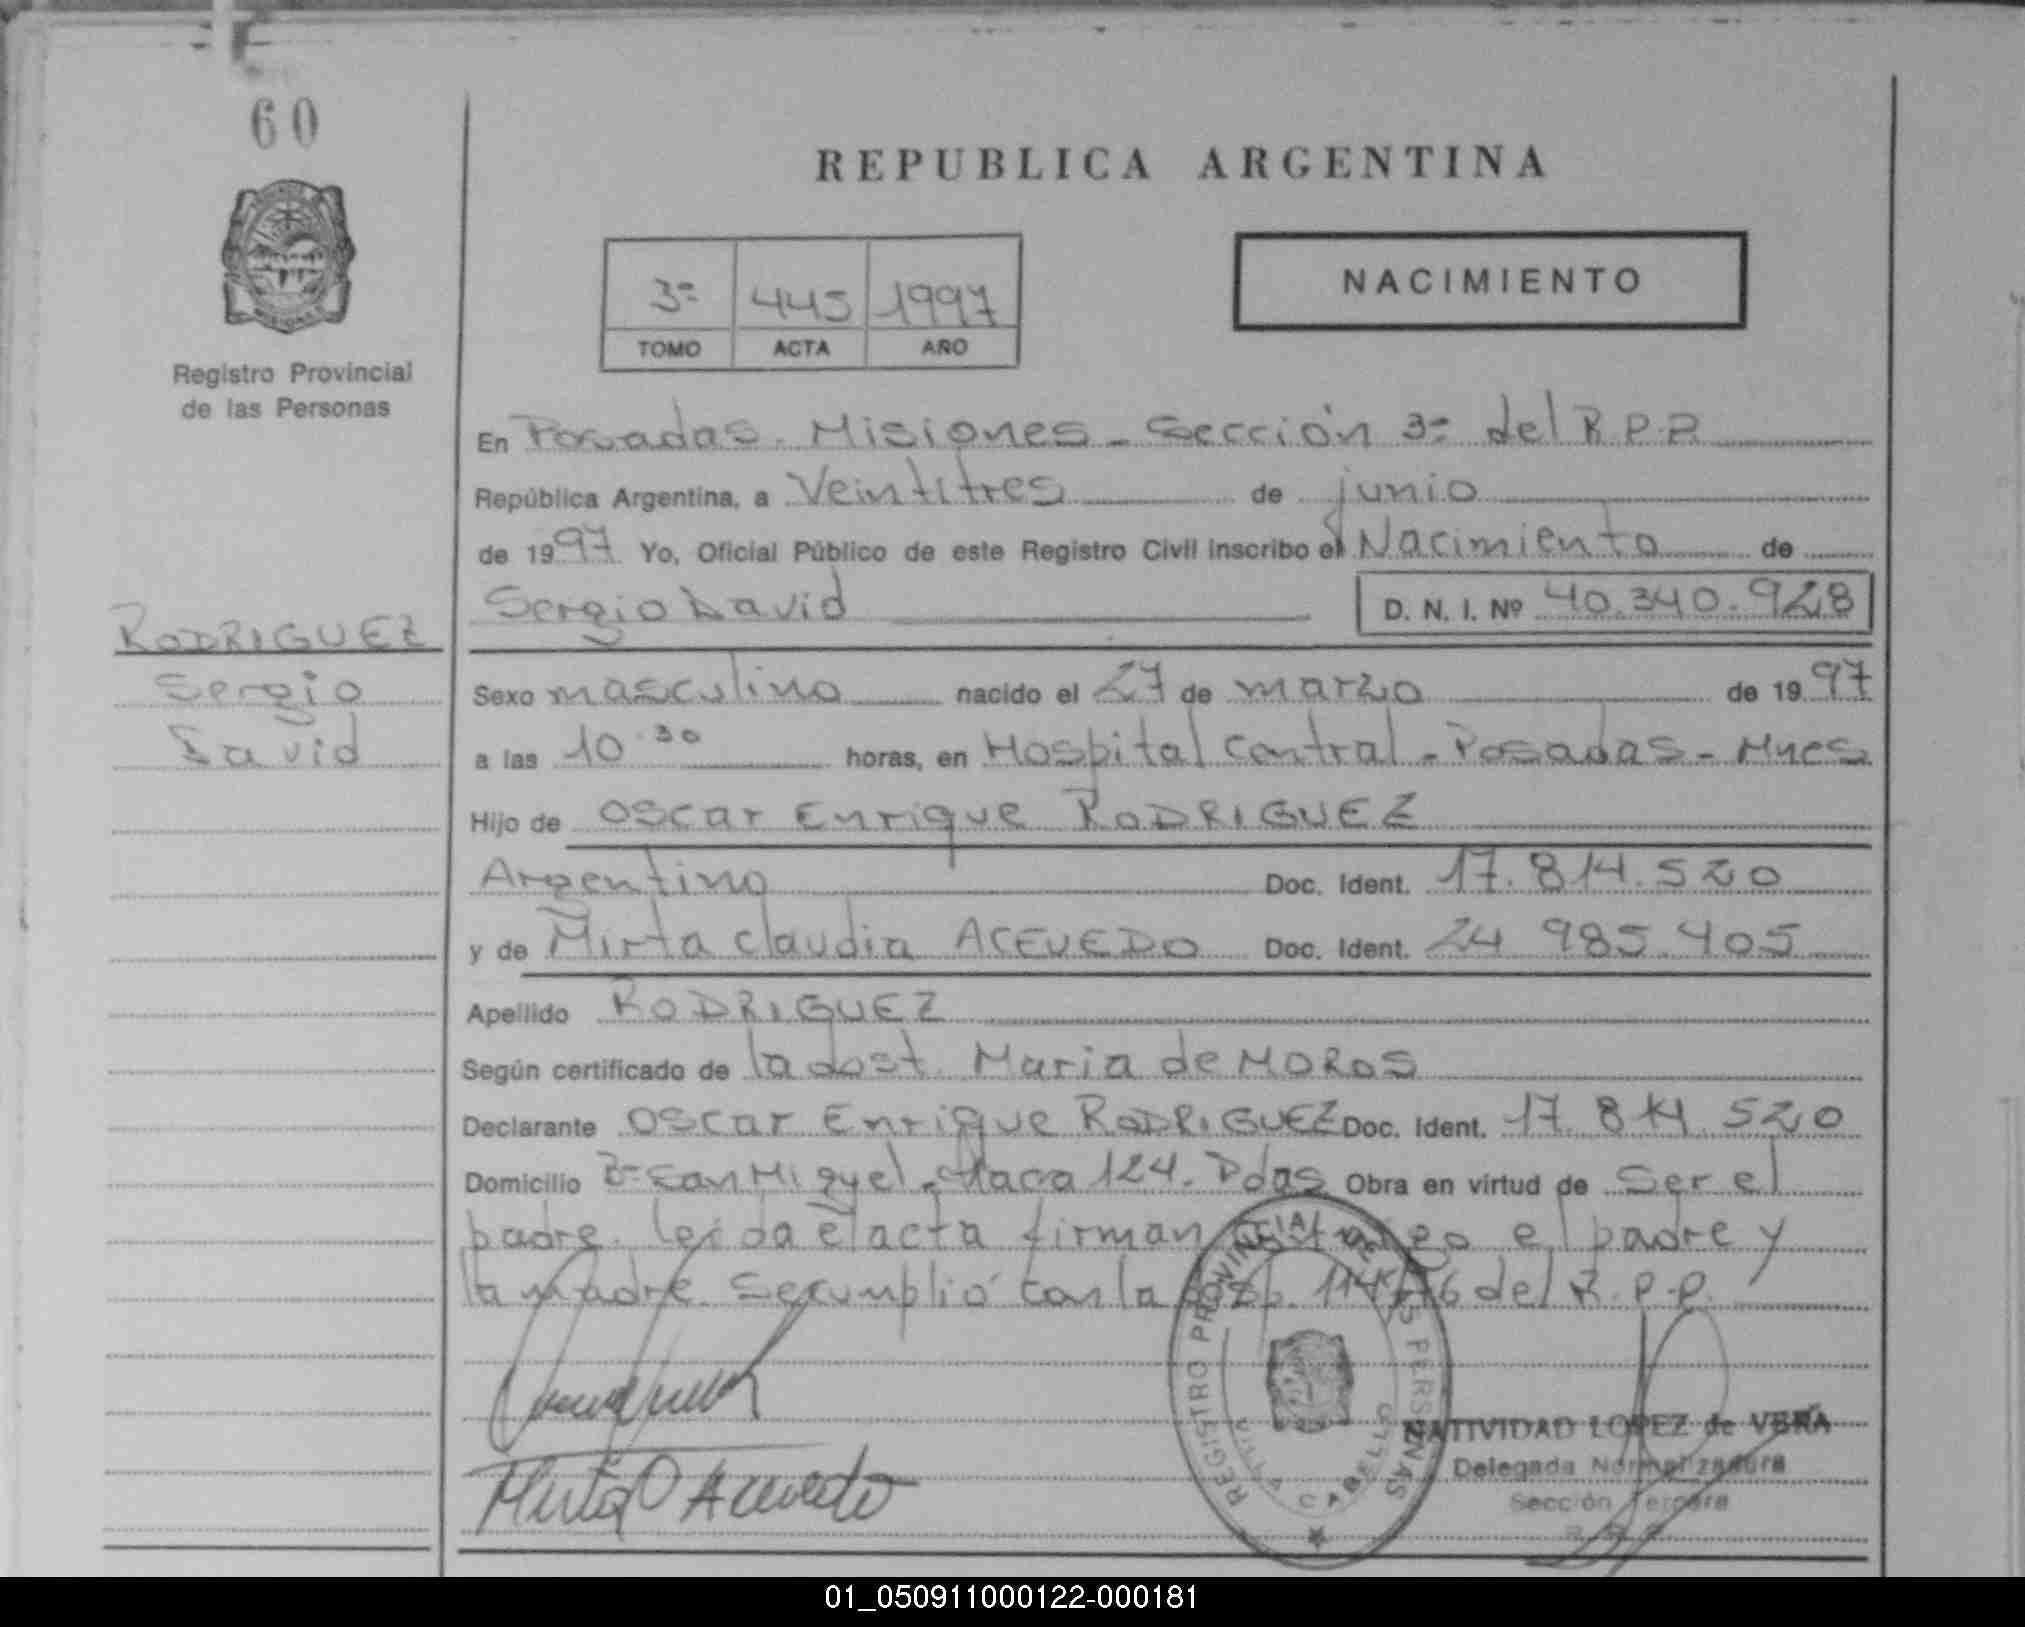 60
REPUBLICA ARGENTINA
NACIMIENTO
3= 445 1997
TOMO ACTA AÑO
Registro Provincial
de las Personas
En Posadas. Misiones - Sección 3= del R.P.P.
República Argentina, a Veintitres de junio
de 1997 Yo, Oficial Público de este Registro Civil inscribo el Nacimiento de
Sergio David D. N. I. Nº 40.340.928
RODRIGUEZ
Sergio
David
Sexo masculino nacido el 27 de marzo de 1997
a las 10.30 horas, en Hospital Central - Posadas - Mnes
Hijo de Oscar Enrique RODRIGUEZ
Argentino Doc. Ident. 17.814.520
y de Mirta Claudia ACEVEDO Doc. Ident. 24 985.405
Apellido RODRIGUEZ
Según certificado de la Maria de MOROS
Declarante Oscar Enrique RODRIGUEZ Doc. Ident. 17.814.520
Domicilio B= San Miguel - 124. Pdas Obra en virtud de Ser el
padre. leida el acta firman conmigo el padre y
la madre. Se cumplió con la del R.P.P.
REGISTRO PROVINCIAL DE LAS PERSONAS
CABELLO
NATIVIDAD LOPEZ de VERA
Delegada Normalizadora
Sección Tercera
Mirta Acevedo
01_050911000122-000181